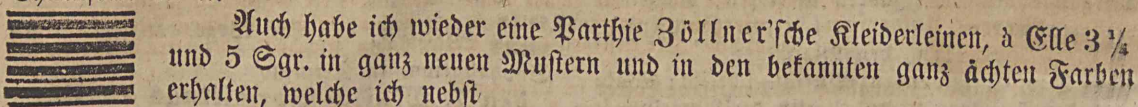 Auch habe ich wieder eine Parthie Zöllner'sche Kleiderleinen, à Elle 3 ¼
und 5 Sgr. in ganz neuen Mustern und in den bekannten ganz ächten Farben
erhalten, welche ich nebst